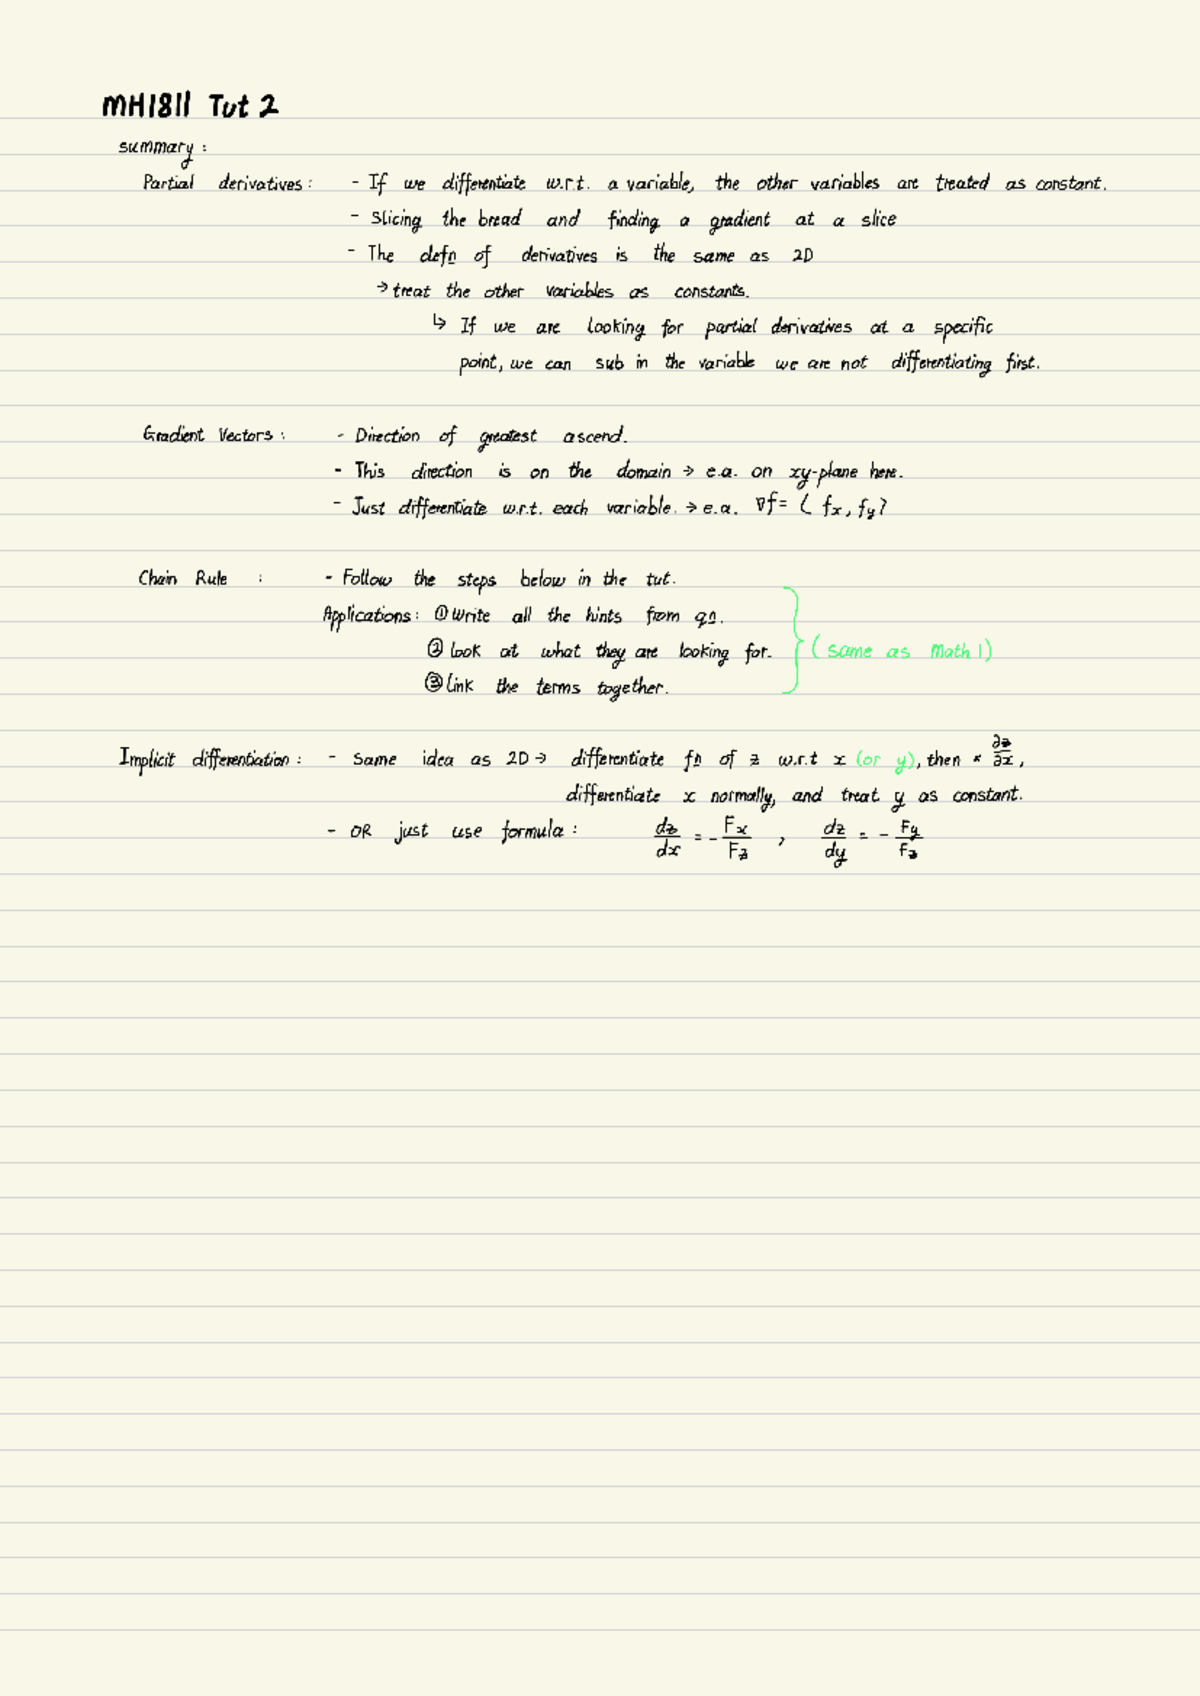 MH1811 Tut 2
summary:
Partial derivatives: - If we differentiate w.r.t. a variable, the other variables are treated as constant.
- Slicing the bread and finding a gradient at a slice
- The defn of derivatives is the same as 2D
→ treat the other variables as constants.
↳ If we are looking for partial derivatives at a specific
point, we can sub in the variable we are not differentiating first.
Gradient Vectors: - Direction of greatest ascend.
- This direction is on the domain → e.a. on xy-plane here.
- Just differentiate w.r.t. each variable. → e.a. ∇f = ⟨ fx, fy ⟩
Chain Rule : - Follow the steps below in the tut.
Applications: ① Write all the hints from qn.
② Look at what they are looking for. } (same as Math 1)
③ Link the terms together.
Implicit differentiation: - Same idea as 2D → differentiate fn of z w.r.t x (or y), then * ∂z/∂x,
differentiate x normally, and treat y as constant.
- OR just use formula: dz/dx = - Fx/Fz , dz/dy = - Fy/Fz